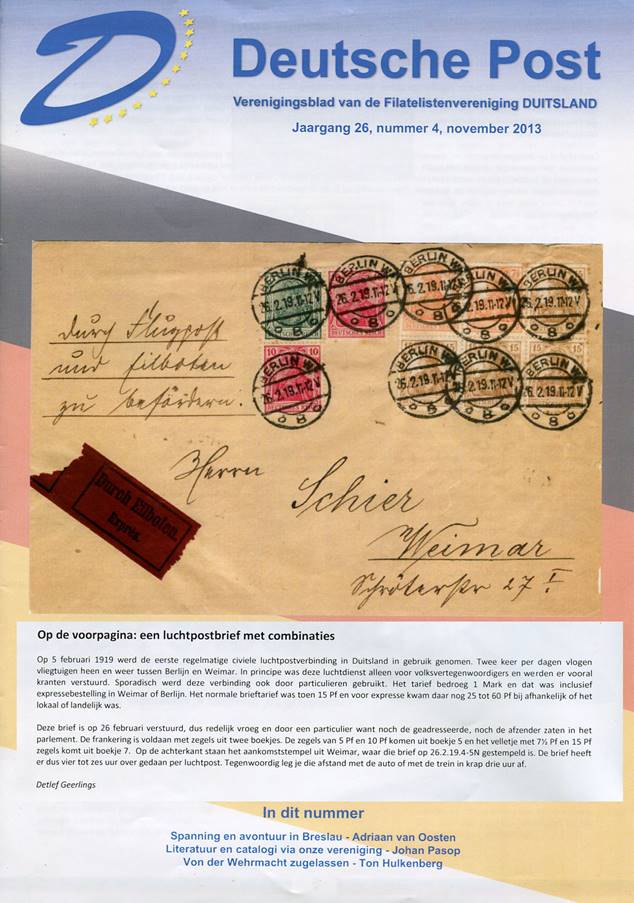 Deutsche Post
Verenigingsblad van de Filatelistenvereniging DUITSLAND
Jaargang 26, nummer 4, november 2013
BERLIN W
26.2.19.11-12V
8
BERLIN W
26.2.19.11-12V
8
BERLIN W
26.2.19.11-12V
8
BERLIN W
26.2.19.11-12V
8
BERLIN W
26.2.19.11-12V
8
durch Flugpost
und Eilboten
zu befördern.
10 10
BERLIN W
26.2.19.11-12V
8
15 15
BERLIN W
26.2.19.11-12V
8
BERLIN W
26.2.19.11-12V
8
15 15
BERLIN W
26.2.19.11-12V
8
Durch Eilboten.
Exprès.
Herrn Schier
Weimar
Schröterstr 27 I
Op de voorpagina: een luchtpostbrief met combinaties
Op 5 februari 1919 werd de eerste regelmatige civiele luchtpostverbinding in Duitsland in gebruik genomen. Twee keer per dagen vlogen
vliegtuigen heen en weer tussen Berlijn en Weimar. In principe was deze luchtdienst alleen voor volksvertegenwoordigers en werden er vooral
kranten verstuurd. Sporadisch werd deze verbinding ook door particulieren gebruikt. Het tarief bedroeg 1 Mark en dat was inclusief
expressebestelling in Weimar of Berlijn. Het normale brieftarief was toen 15 Pf en voor expresse kwam daar nog 25 tot 60 Pf bij afhankelijk of het
lokaal of landelijk was.
Deze brief is op 26 februari verstuurd, dus redelijk vroeg en door een particulier want noch de geadresseerde, noch de afzender zaten in het
parlement. De frankering is voldaan met zegels uit twee boekjes. De zegels van 5 Pf en 10 Pf komen uit boekje 5 en het velletje met 7½ Pf en 15 Pf
zegels komt uit boekje 7. Op de achterkant staan het aankomststempel uit Weimar, waar die brief op 26.2.19.4-5N gestempeld is. De brief heeft
er dus vier tot zes uur over gedaan per luchtpost. Tegenwoordig leg je die afstand met de auto of met de trein in krap drie uur af.
Detlef Geerlings
In dit nummer
Spanning en avontuur in Breslau - Adriaan van Oosten
Literatuur en catalogi via onze vereniging - Johan Pasop
Von der Wehrmacht zugelassen - Ton Hulkenberg